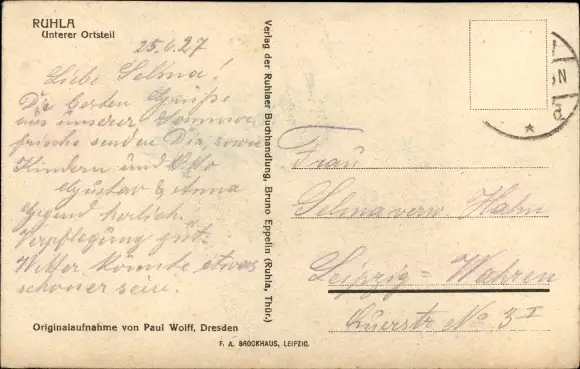 RUHLA
Unterer Ortsteil
25.6.27
Liebe Selma!
Die besten Grüße
aus unserer Sommer
frische senden Dir, sowie
Kindern und Otto
Gustav & Anna
Gegend herlich.
Verpflegung gut.
Wetter könnte etwas
schöner sein.
Originalaufnahme von Paul Wolff, Dresden
Verlag der Ruhlaer Buchhandlung, Bruno Eppelin (Ruhla, Thür.)
F. A. BROCKHAUS, LEIPZIG.
Frau
Selma verw Hahn
Leipzig = Wahren
Querstr No 3 I